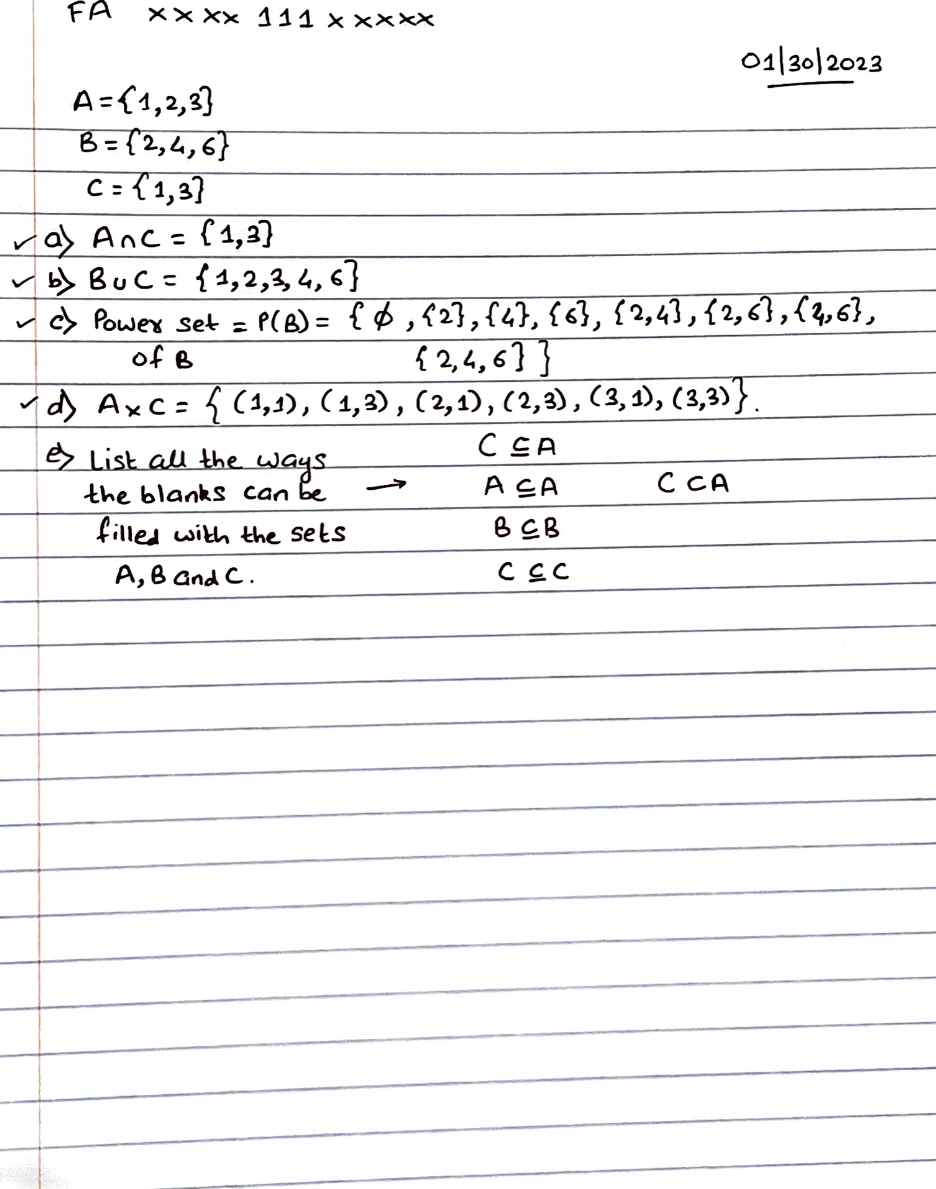 FA xxxx 111 xxxxx
01/30/2023
A={1,2,3}
B={2,4,6}
C={1,3}
✓ a) A∩C = {1,3}
✓ b) B∪C = {1,2,3,4,6}
✓ c) Power set = P(B) = {ϕ, {2}, {4}, {6}, {2,4}, {2,6}, {4,6},
of B {2,4,6}}
✓ d) A×C = {(1,1), (1,3), (2,1), (2,3), (3,1), (3,3)}.
e) List all the ways C ⊆ A
the blanks can be → A ⊆ A C ⊂ A
filled with the sets B ⊆ B
A, B and C. C ⊆ C